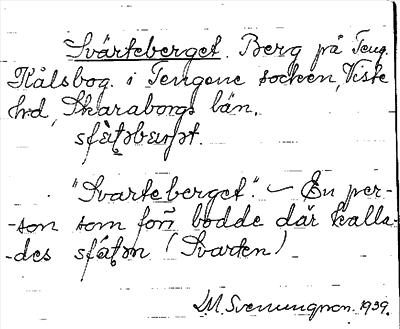 Svärteberget. Berg på Teng.
Kålsbog. i Tengene socken, Viste
hd, Skaraborgs län.
"Svarteberget". – En per-
-son som förr bodde där kalla-
-des (Svarten)
D.M. Svenungson. 1939.